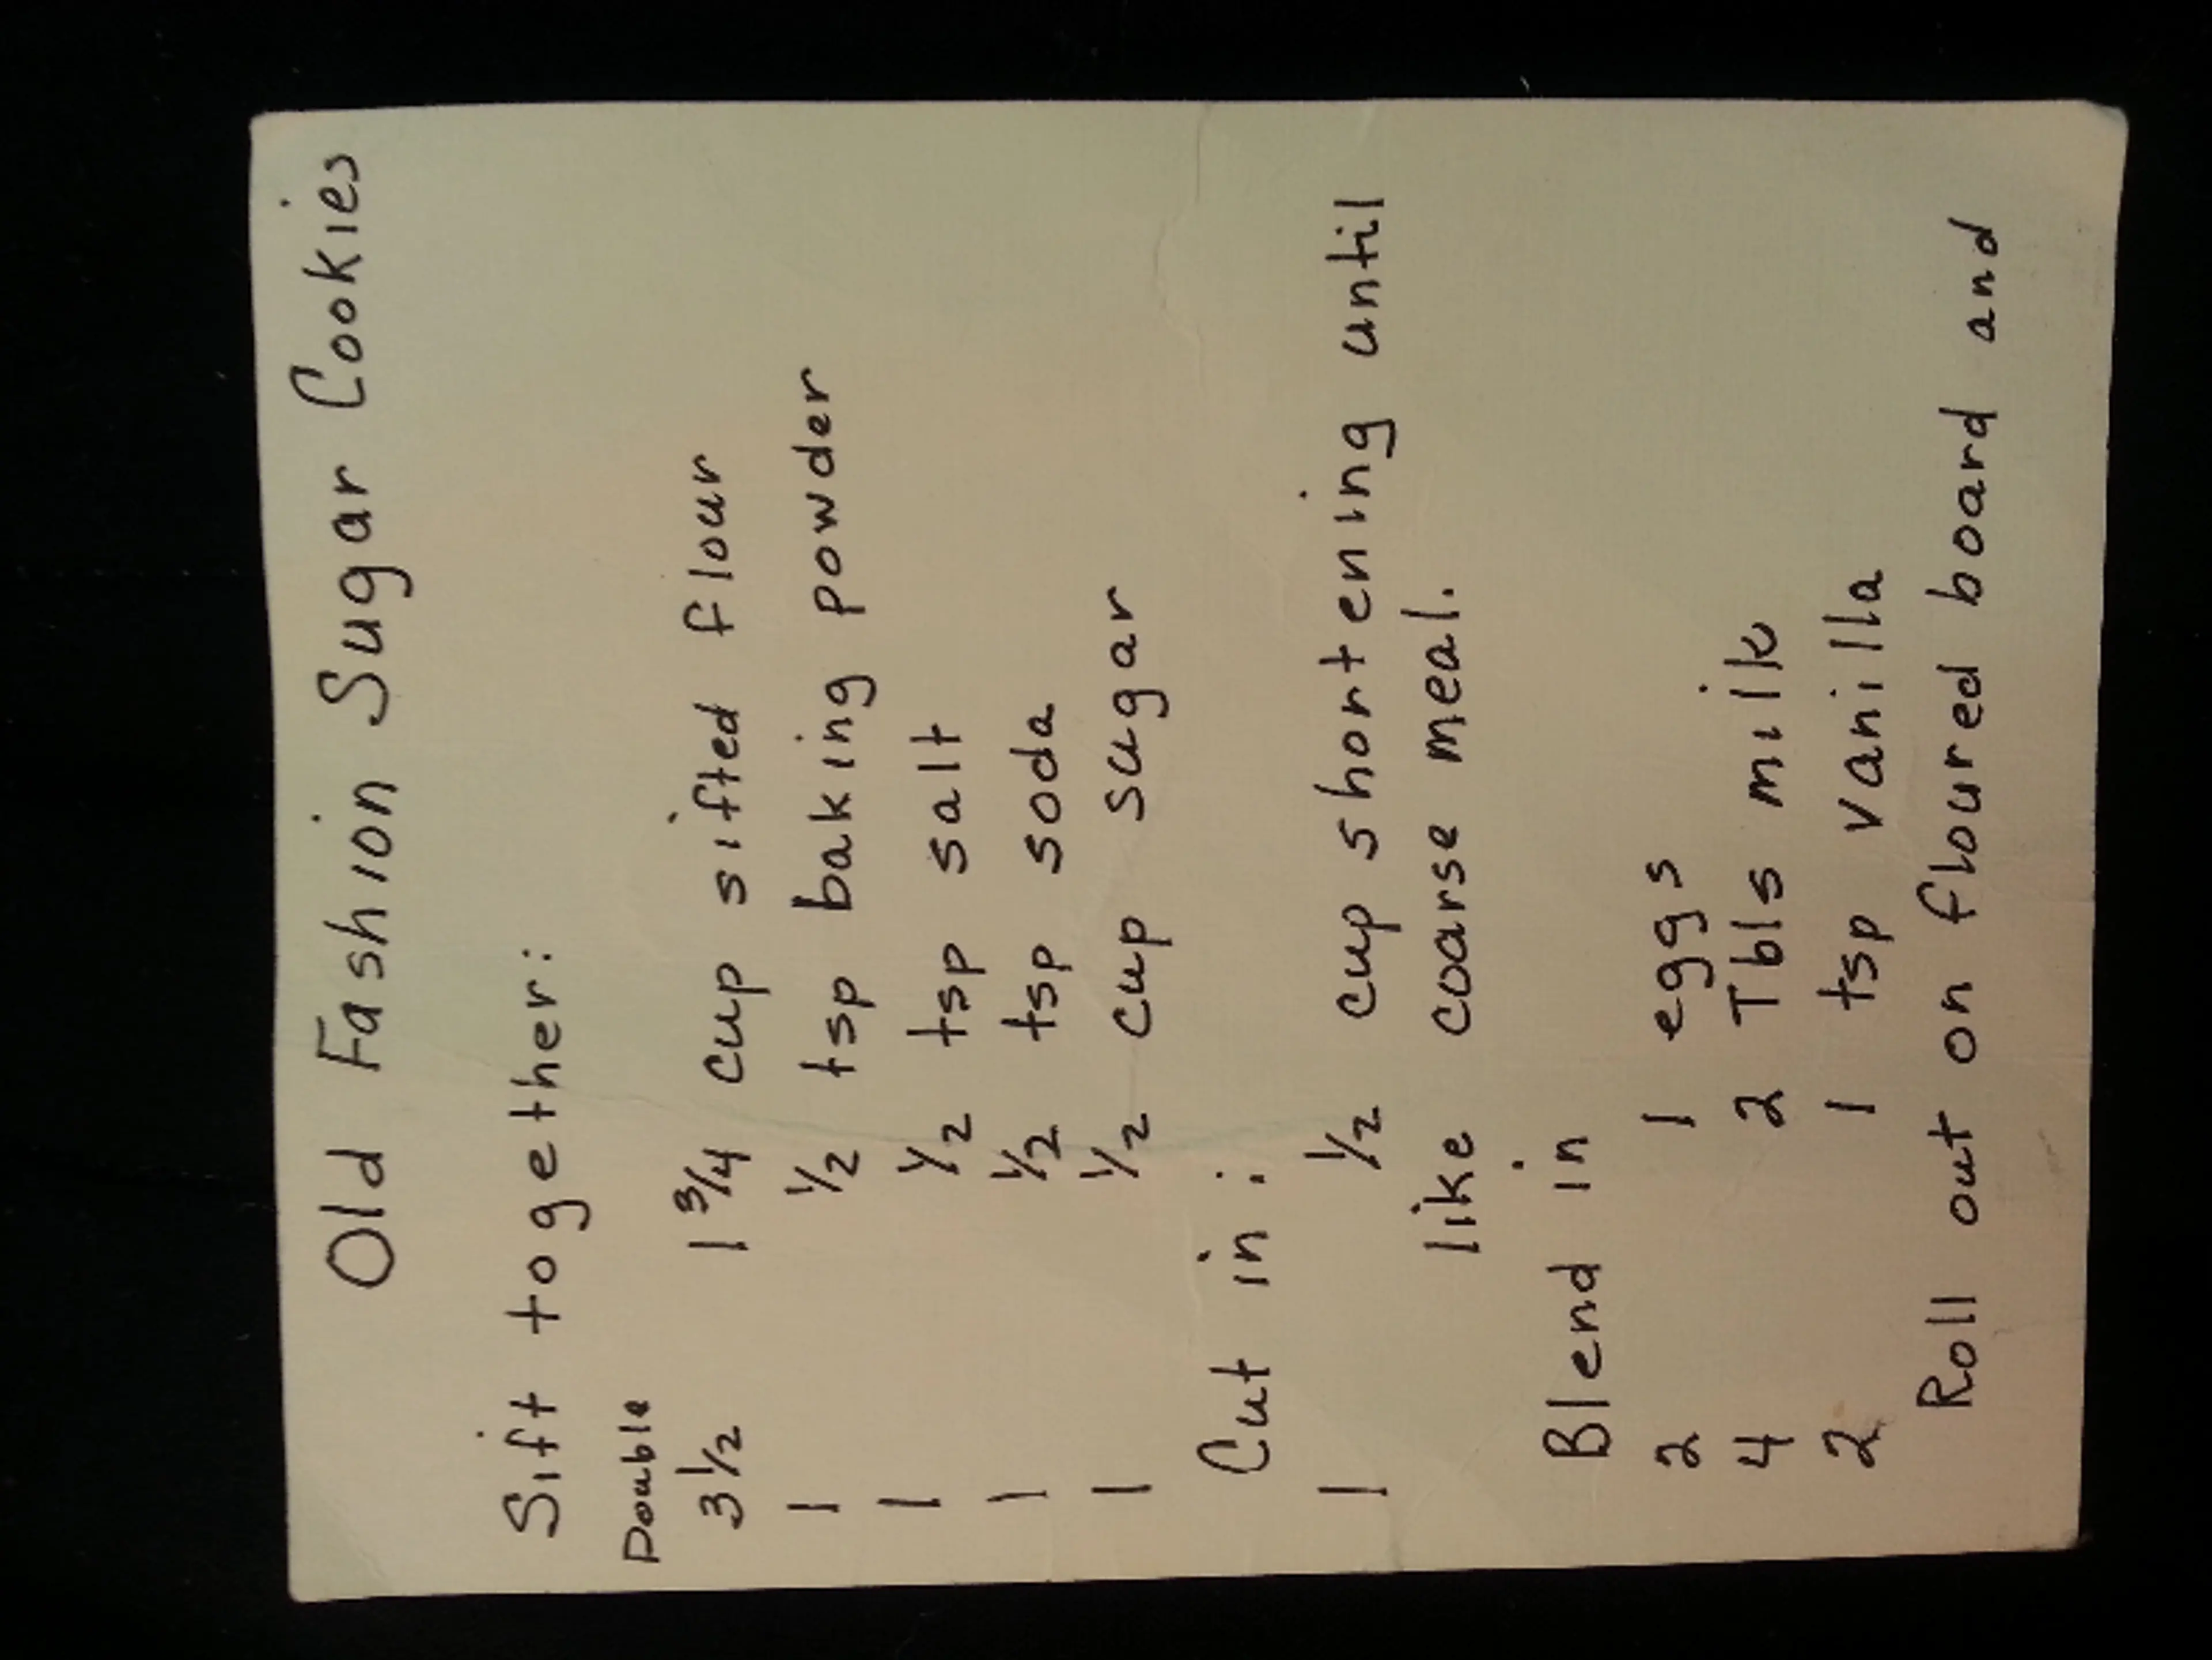 Old Fashion Sugar Cookies
Sift together:
Double
3 1/2 1 3/4 cup sifted flour
1 1/2 tsp baking powder
1 1/2 tsp salt
1 1/2 tsp soda
1 1/2 cup sugar
Cut in:
1 1/2 cup shortening until
like coarse meal.
Blend in
2 1 eggs
4 2 Tbls milk
2 1 tsp vanilla
Roll out on floured board and